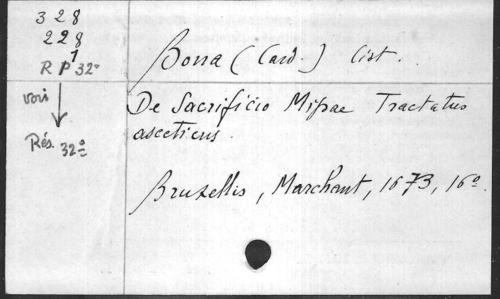 328
228
1
R P 32º
voir
Rés. 32º
Bona (Card.) Cist.
De Sacrificio Missae Tractatus
asceticus.
Bruxellis, Marchant, 1673, 16º.